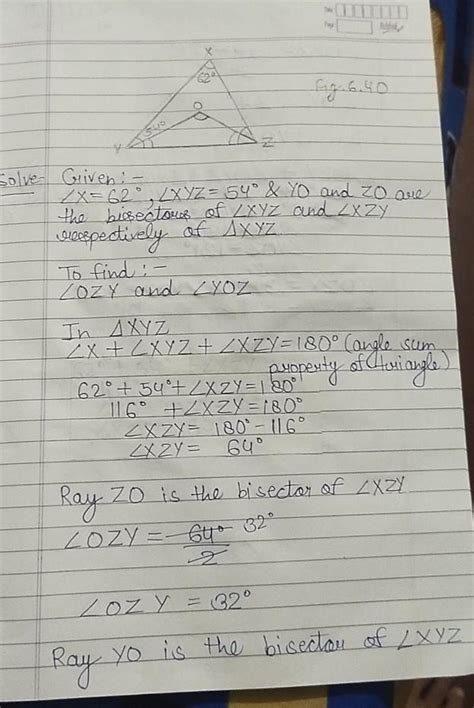 X
62°
Fig. 6.40
O
54°
Y
Z
Solve- Given:-
∠X=62°, ∠XYZ=54° & YO and ZO are
the bisectors of ∠XYZ and ∠XZY
respectively of ΔXYZ
To find :-
∠OZY and ∠YOZ
In ΔXYZ
∠X + ∠XYZ + ∠XZY=180° (angle sum
property of triangle)
62°+ 54°+∠XZY=180°
116° +∠XZY=180°
∠XZY= 180°-116°
∠XZY= 64°
Ray ZO is the bisector of ∠XZY
∠OZY = 64° 32°
2
∠OZY = 32°
Ray YO is the bisector of ∠XYZ